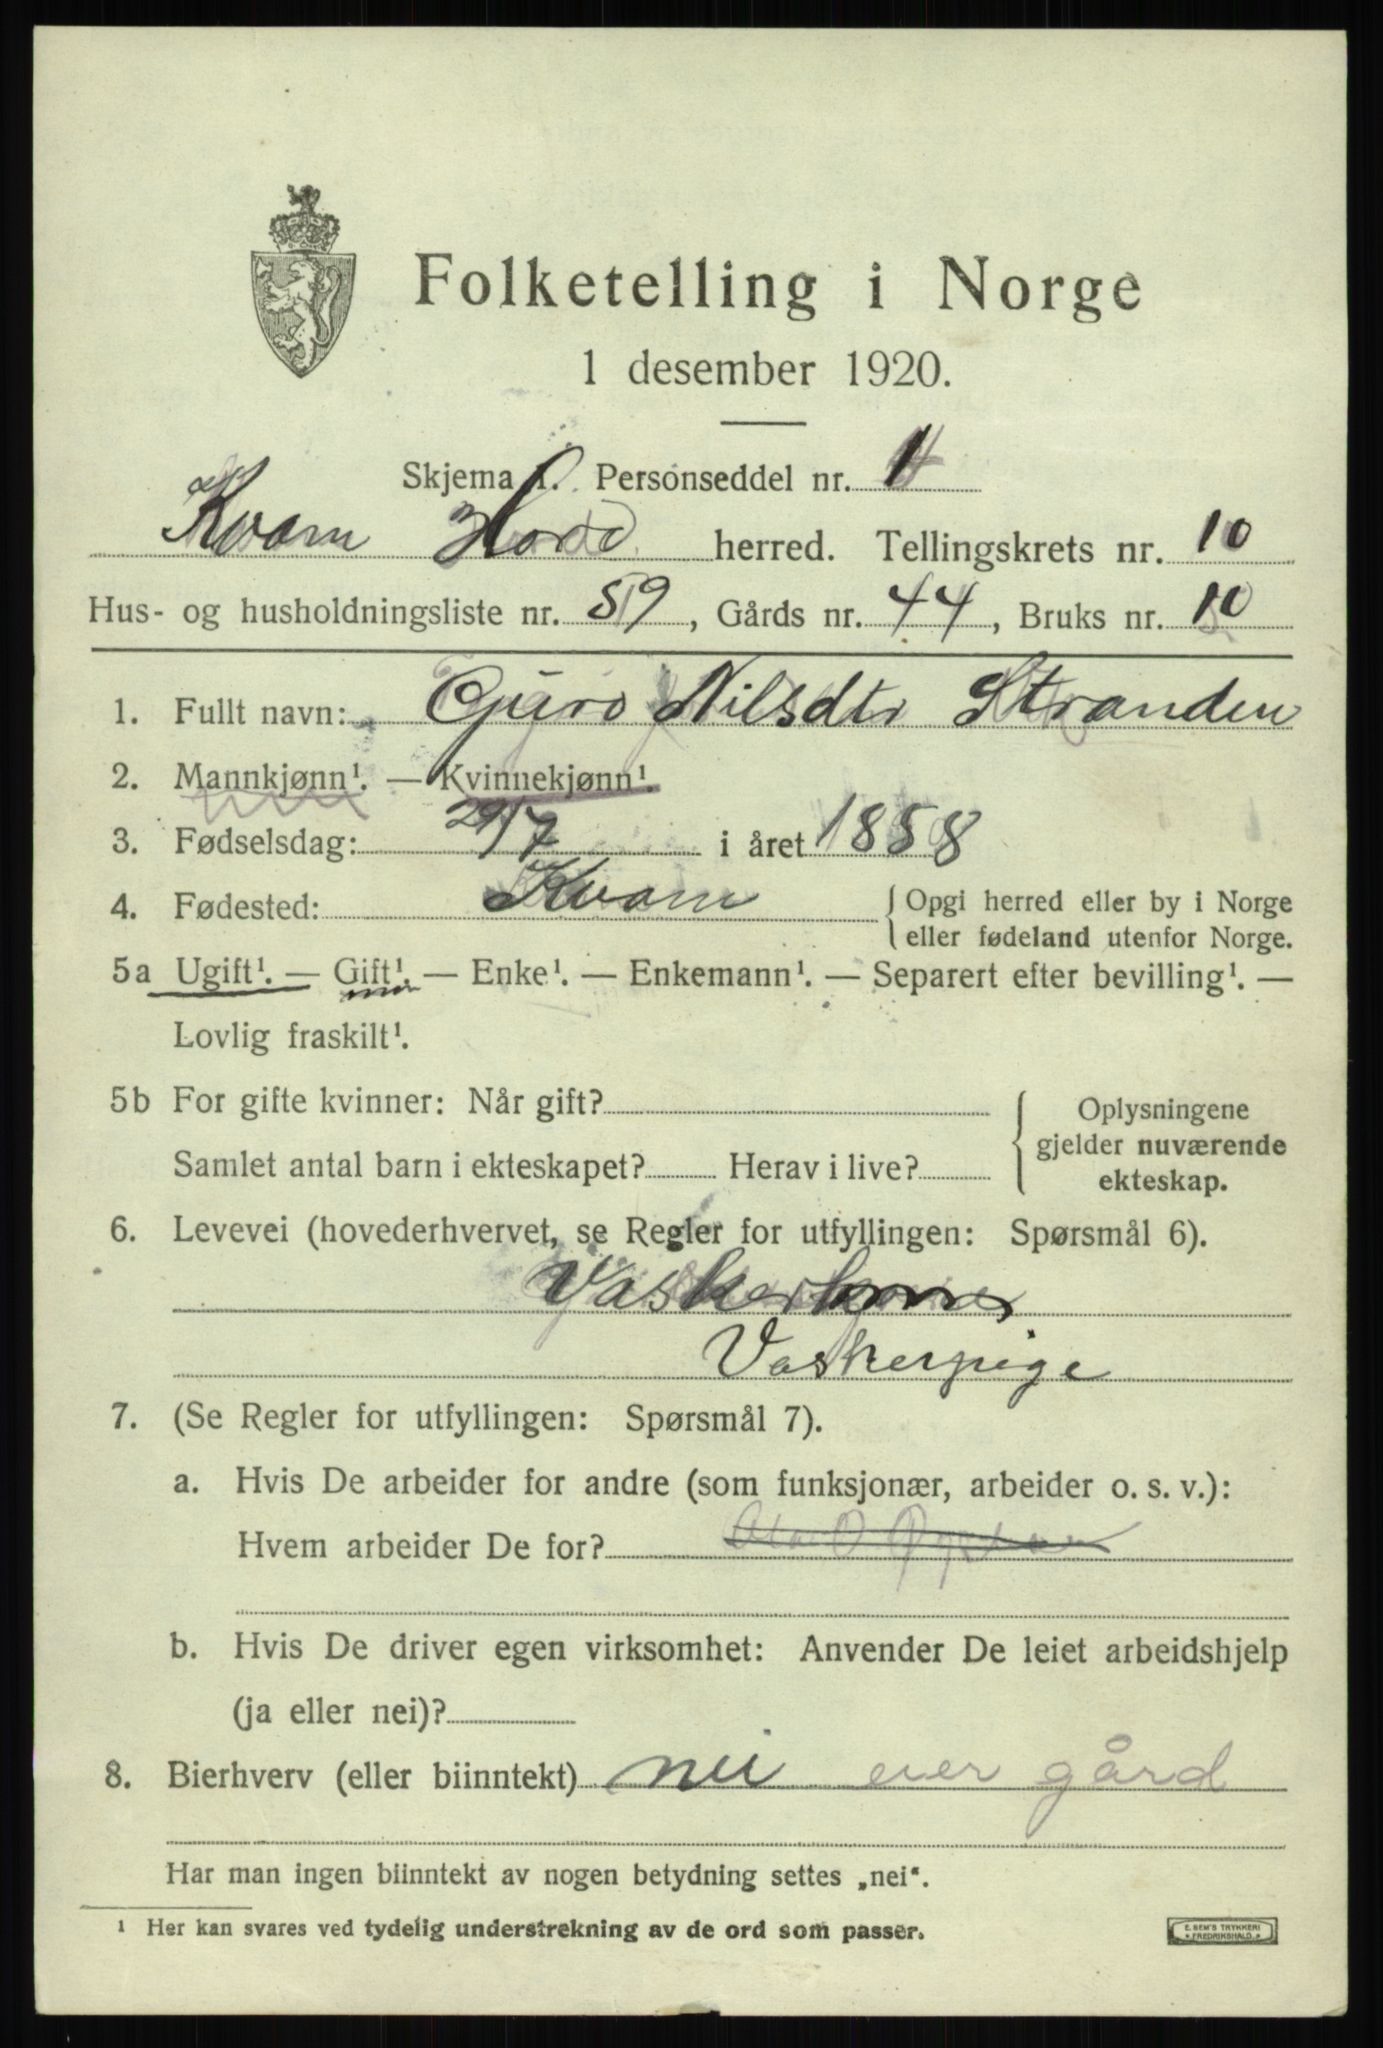 Folketelling i Norge
1 desember 1920.
Skjema 1. Personseddel nr. 1
Kvam Hord herred. Tellingskrets nr. 10
Hus- og husholdningsliste nr. 59, Gårds nr. 44, Bruks nr. 10
1. Fullt navn: Guro Nilsdtr Stranden
2. Mannkjønn¹. — Kvinnekjønn¹.
3. Fødselsdag: 29/7 i året 1858
4. Fødested: Kvam { Opgi herred eller by i Norge
eller fødeland utenfor Norge.
5a Ugift¹. — Gift¹. — Enke¹. — Enkemann¹. — Separert efter bevilling¹. —
Lovlig fraskilt¹.
5b For gifte kvinner: Når gift?
Samlet antal barn i ekteskapet? Herav i live?
{ Oplysningene
gjelder nuværende
ekteskap.
6. Levevei (hovederhvervet, se Regler for utfyllingen: Spørsmål 6).
Vaskerkone
Vaskerpige
7. (Se Regler for utfyllingen: Spørsmål 7).
a. Hvis De arbeider for andre (som funksjonær, arbeider o. s. v.):
Hvem arbeider De for?
b. Hvis De driver egen virksomhet: Anvender De leiet arbeidshjelp
(ja eller nei)?
8. Bierhverv (eller biinntekt) nei eier gård
Har man ingen biinntekt av nogen betydning settes „nei“.
¹ Her kan svares ved tydelig understrekning av de ord som passer.
E. SEM'S TRYKKERI
FREDRIKSHALD.